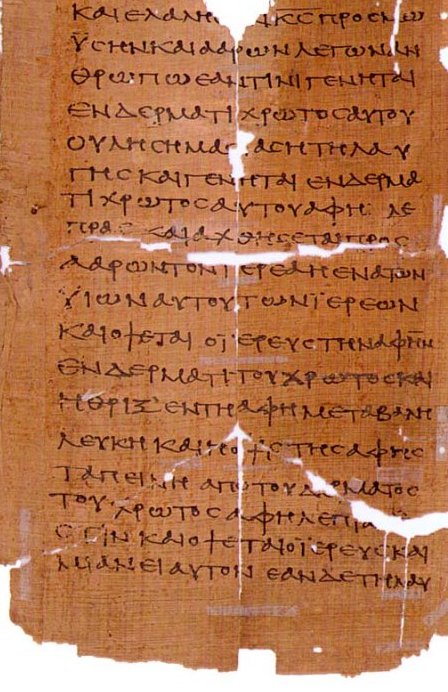 ΚΑΙΕΛΑΛΗ ΚC ΠΡΟCΜΩ
ΫCΗΝΚΑΙΑΑΡΩΝΛΕΓΩΝΑΝ
ΘΡΩΠΩΕΑΝΤΙΝΙΓΕΝΗΤΑΙ
ΕΝΔΕΡΜΑΤΙΧΡΩΤΟCΑΥΤΟΥ
ΟΥΛΗCΗΜΑC ΑCΗΤΗΛΑΥ
ΓΗCΚΑΙΓΕΝΗΤΑΙΕΝΔΕΡΜΑ
ΤΙΧΡΩΤΟCΑΥΤΟΥΑΦΗ ΛΕ
ΠΡΑC ΚΑΙΑΧΘΗCΕΤΑΙΠΡΟC
ΑΑΡΩΝΤΟΝΪΕΡΕΑΗΕΝΑΤΩΝ
ΫΙΩΝΑΥΤΟΥΤΩΝΪΕΡΕΩΝ
ΚΑΙΟΨΕΤΑΙΟΪΕΡΕΥCΤΗΝΑΦΗΝ
ΕΝΔΕΡΜΑΤΙΤΟΥΧΡΩΤΟCΚΑΙ
ΗΘΡΙΞΕΝΤΗΑΦΗΜΕΤΑΒΑΛΗ
ΛΕΥΚΗΚΑΙΗΟΨΙCΤΗCΑΦΗC
ΤΑΠΕΙΝΗ ΑΠΟΤΟΥΔΕΡΜΑΤΟC
ΤΟΥΧΡΩΤΟCΑΦΗΛΕΠΡΑ
CΤΙΝΚΑΙΟΨΕΤΑΙΟΪΕΡΕΥCΚΑΙ
ΜΙΑΝΕΙΑΥΤΟΝ ΕΑΝΔΕΤΗΛΑΥ